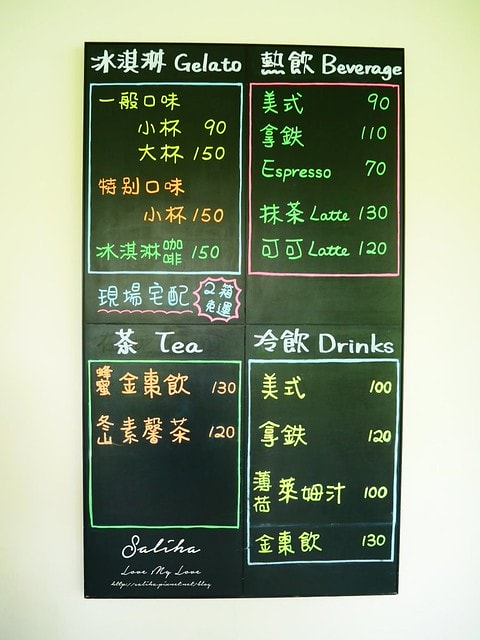 冰淇淋 Gelato
一般口味
小杯 90
大杯 150
特別口味
小杯 150
冰淇淋咖啡 150
現場宅配 2箱免運
熱飲 Beverage
美式 90
拿鉄 110
Espresso 70
抹茶 Latte 130
可可 Latte 120
茶 Tea
蜂蜜金棗飲 130
冬山素馨茶 120
冷飲 Drinks
美式 100
拿鉄 120
薄荷萊姆汁 100
金棗飲 130
Saliha
Love My Love
http://saliha.pixnet.net/blog